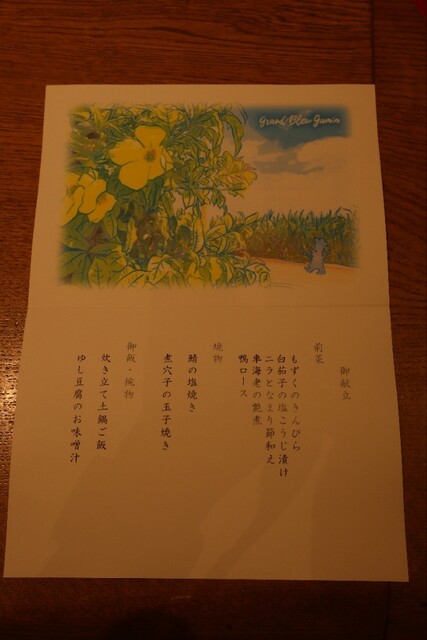 Grand Bleu Gamin
御献立
前菜
もずくのきんぴら
白茄子の塩こうじ漬け
ニラとなまり節和え
車海老の艶煮
鴨ロース
焼物
鯖の塩焼き
煮穴子の玉子焼き
御飯・椀物
炊き立て土鍋ご飯
ゆし豆腐のお味噌汁